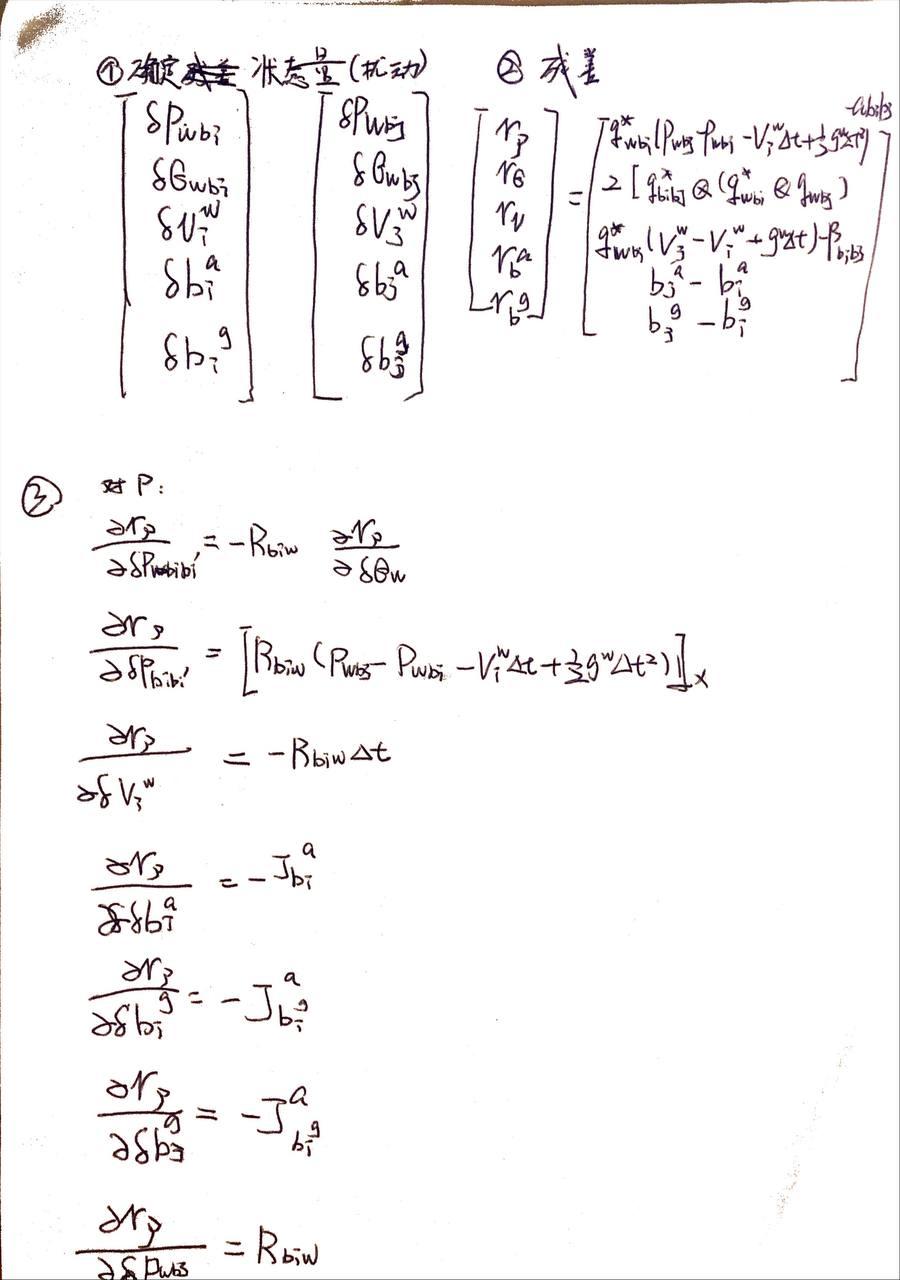 ① 确定 状态量(扰动) ② 残差
[δP_wbi δθ_wbi δV_i^w δb_i^a δb_i^g] [δP_wbj δθ_wbj δV_j^w δb_j^a δb_j^g]
[r_p r_θ r_v r_b^a r_b^g] =
q*_wbi(P_wbj - P_wbi - V_i^w Δt + ½ g^w Δt²) - α_bibj
2[q*_bibj ⊗ (q*_wbi ⊗ q_wbj)
q*_wbi(V_j^w - V_i^w + g^w Δt) - β_bibj
b_j^a - b_i^a
b_j^g - b_i^g
③ 对 P:
∂r_p/∂δP_bibi' = -R_biw ∂r_p/∂δθ_w
∂r_p/∂δP_bibi' = [R_biw (P_wbj - P_wbi - V_i^w Δt + ½ g^w Δt²)]_×
∂r_p/∂δV_j^w = -R_biw Δt
∂r_p/∂δb_i^a = -J_bi^a
∂r_p/∂δb_i^g = -J^a_{b_i^g}
∂r_p/∂δb_j^g = -J^a_{b_i^g}
∂r_p/∂δP_wbj = R_biw